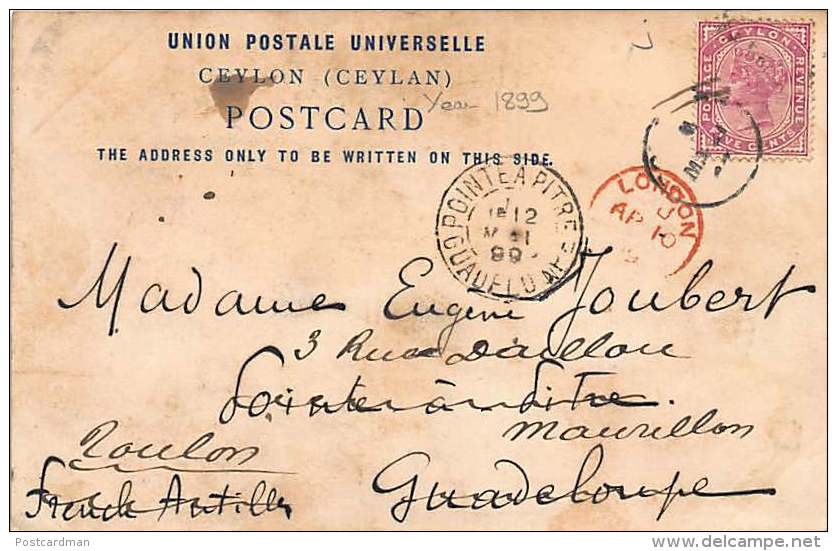 UNION POSTALE UNIVERSELLE
CEYLON (CEYLAN)
POSTCARD
Year 1899
THE ADDRESS ONLY TO BE WRITTEN ON THIS SIDE.
CEYLON
POSTAGE REVENUE
FIVE CENTS
LONDON
AP 10
POINTE A PITRE
12
MAI
99
GUADELOUPE
Madame Eugène Joubert
3 Rue Daullou
Pointe à Pitre.
Mourillon
Toulon
Guadeloupe
French Antilles
Postcardman
delcampe.net